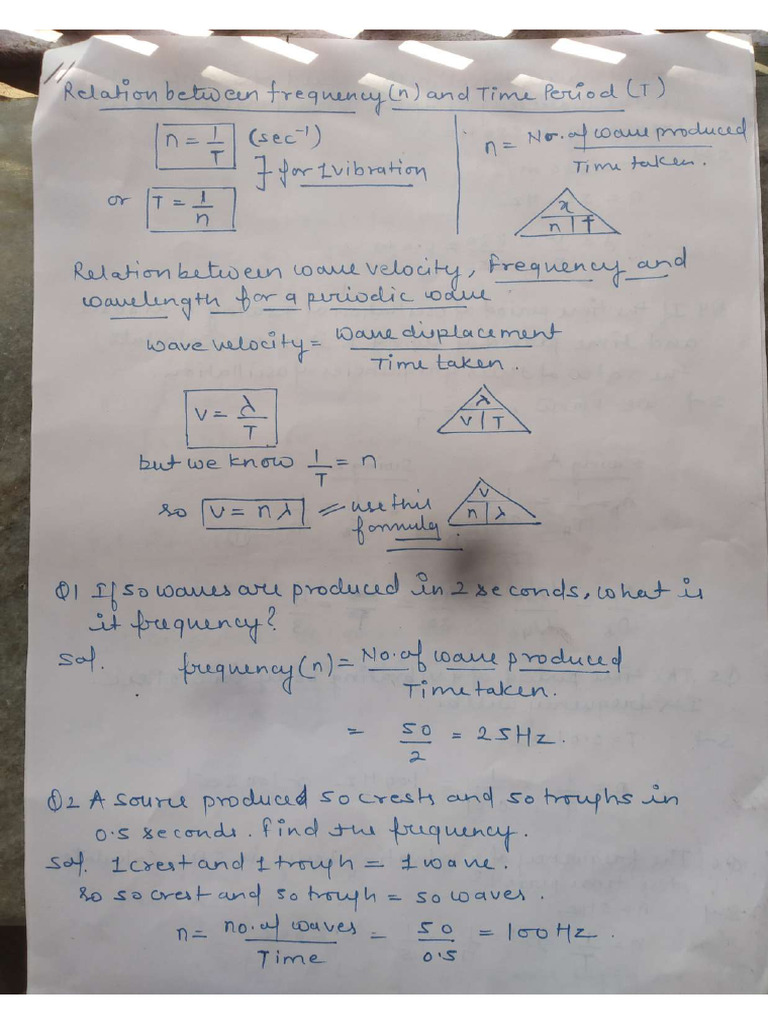 11
Relation between frequency (n) and Time Period (T)
n = 1/T (sec⁻¹)
} for 1 vibration
or T = 1/n
n = No. of wave produced / Time taken.
x
n | T
Relation between wave velocity, frequency and
wavelength for a periodic wave
wave velocity = wave displacement / Time taken.
v = λ/T
λ
V | T
but we know 1/T = n
so v = nλ = use this
formula
v
n | λ
Q1 If 50 waves are produced in 2 seconds, what is
it frequency?
Sol. frequency (n) = No. of wave produced / Time taken.
= 50/2 = 25Hz.
Q2 A source produced 50 crests and 50 troughs in
0.5 seconds. Find the frequency.
Sol. 1 crest and 1 trough = 1 wave.
So 50 crest and 50 trough = 50 waves.
n = no. of waves / Time = 50/0.5 = 100Hz.